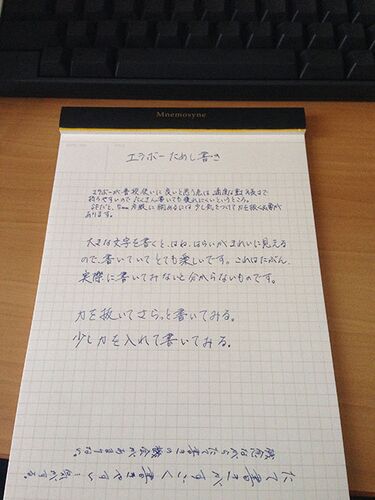 Mnemosyne
エラボーためし書き
エラボーが普段使いに良いと思う点は 適度な
ので たくさん書いても疲れにくいというところ。
だと、5mm方眼に 少し気をつけて力を抜く必要が
あります。
大きな文字を書くと、はね、はらいがきれいに見える
ので、書いていてとても楽しいです。これはたぶん、
実際に書いてみないと分からないものです。
力を抜いてさらっと書いてみる。
少し力を入れて書いてみる。
たて書きがすごく書きやすい気がする。
残念ながらたて書きの機会があまりない。